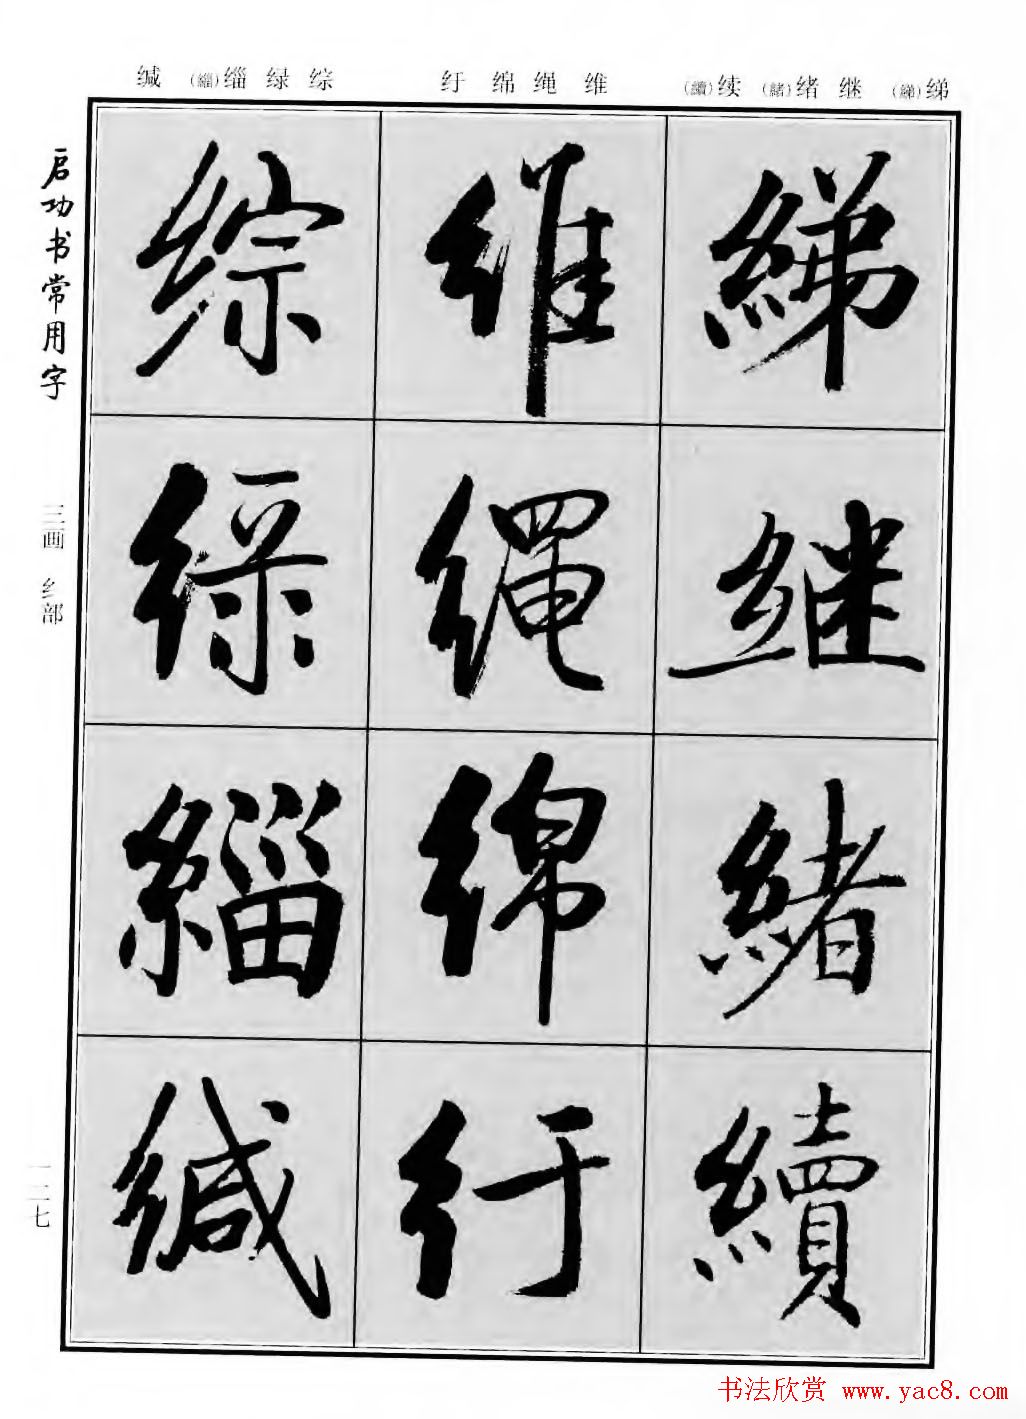 缄 （緇）缁 绿 综
纡 绵 绳 维
（續）续 （緒）绪 继 （綈）绨
启功书常用字
三画 纟部
一二七
綈
继
緒
續
维
绳
绵
纡
综
绿
緇
缄
书法欣赏 www.yac8.com